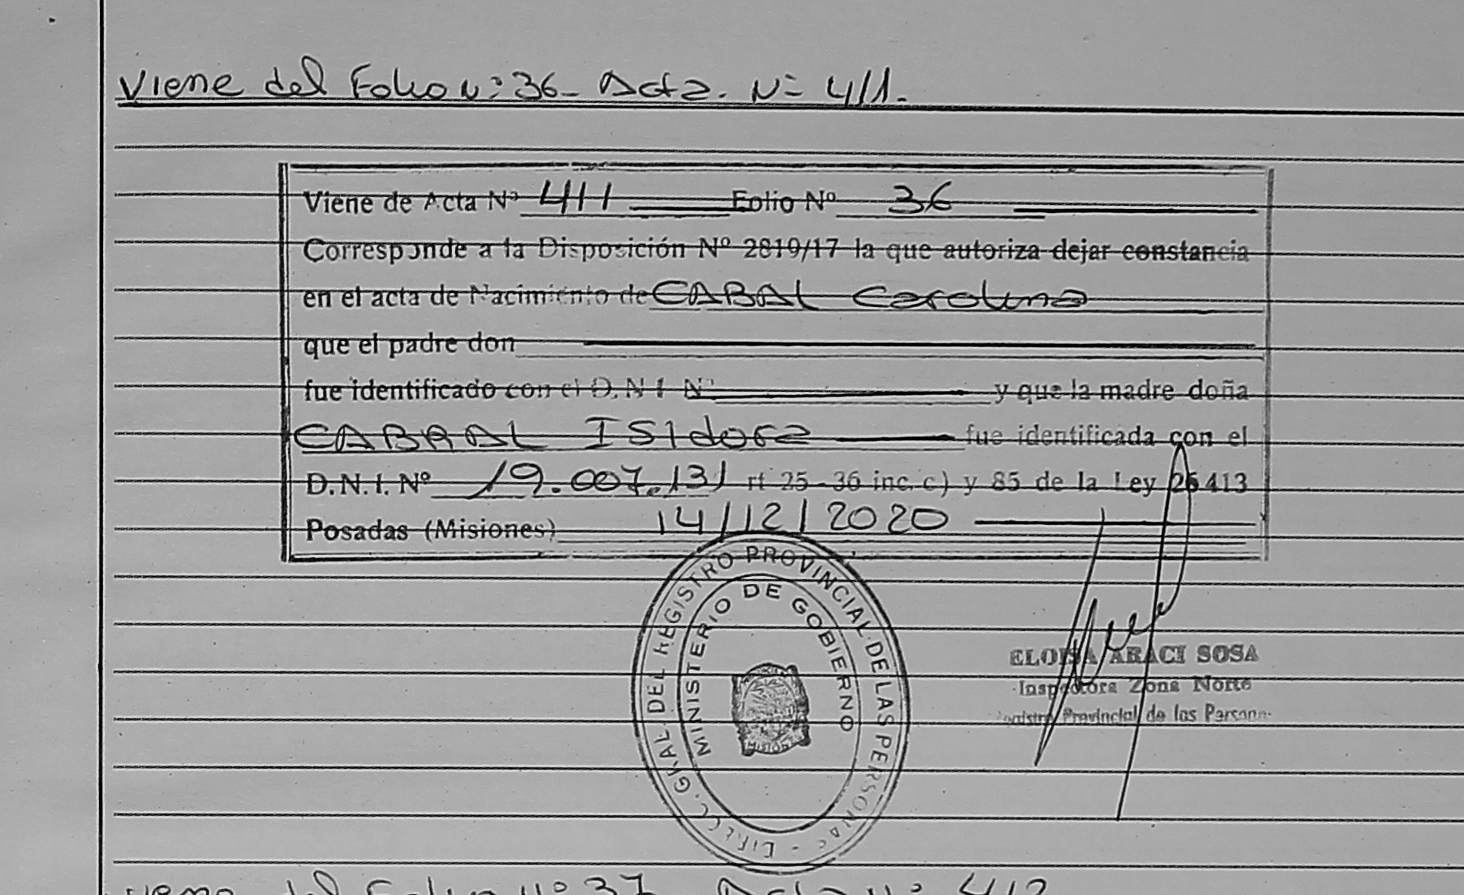 Viene del Folio Nº 36 - Acta. Nº 411.
Viene de Acta Nº 411 Folio Nº 36
Corresponde a la Disposición Nº 2819/17 la que autoriza dejar constancia
en el acta de Nacimiento de CABAL Carolina
que el padre don
fue identificado con el D.N.I Nº y que la madre doña
CABRAL ISIdora fue identificada con el
D.N.I. Nº 19.007.131 rt 25 - 36 inc. c) y 85 de la Ley 26413
Posadas (Misiones) 14/12/2020
DIRECC. GRAL DEL REGISTRO PROVINCIAL DE LAS PERSONAS
MINISTERIO DE GOBIERNO
MISIONES
ELOISA ARACI SOSA
Inspectora Zona Norte
Registro Provincial de las Person
Viene del Folio Nº 37 Acta Nº 412